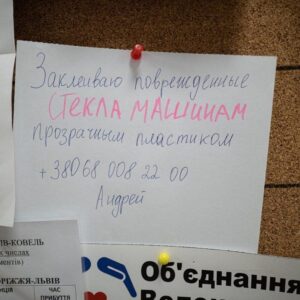 Заклеиваю поврежденные
СТЕКЛА МАШИНАМ
прозрачным пластиком
+38068 008 22 00
Андрей
ІВ-КОВЕЛЬ
х числах
ментів)
ОРІЖЖЯ-ЛЬВІВ
ЧАС
ПРИБУТТЯ
Об'єднання